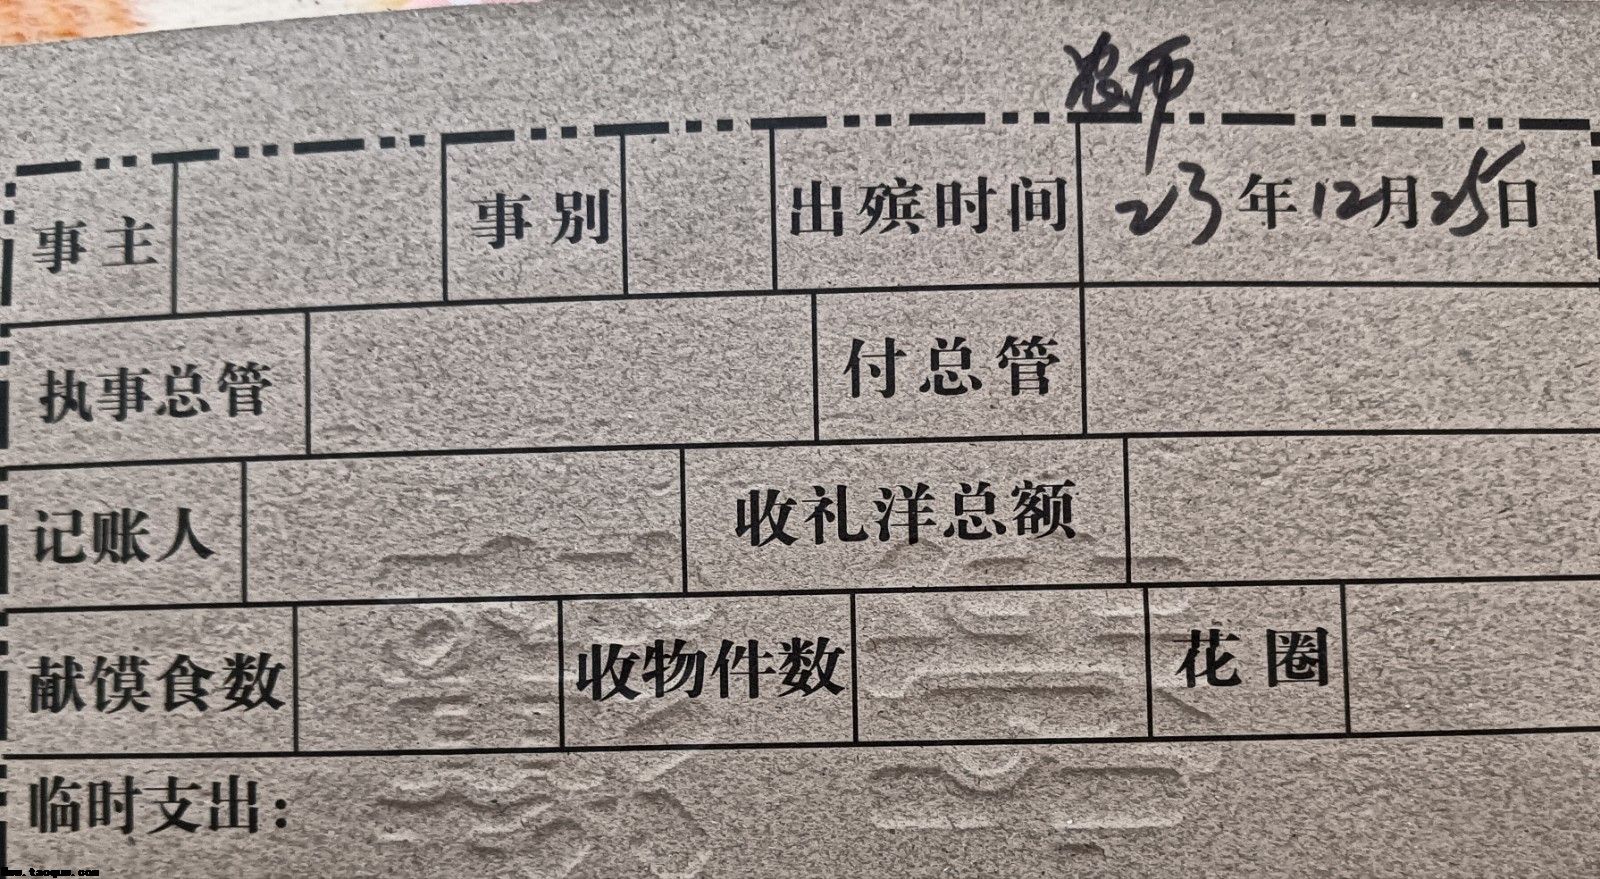 农历
事主 事别 出殡时间 23年12月25日
执事总管 付总管
记账人 收礼洋总额
献馍食数 收物件数 花圈
临时支出：
www.taoque.com